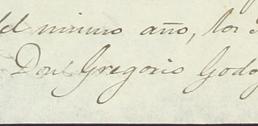 del mismo año, los
Don Gregorio Godo